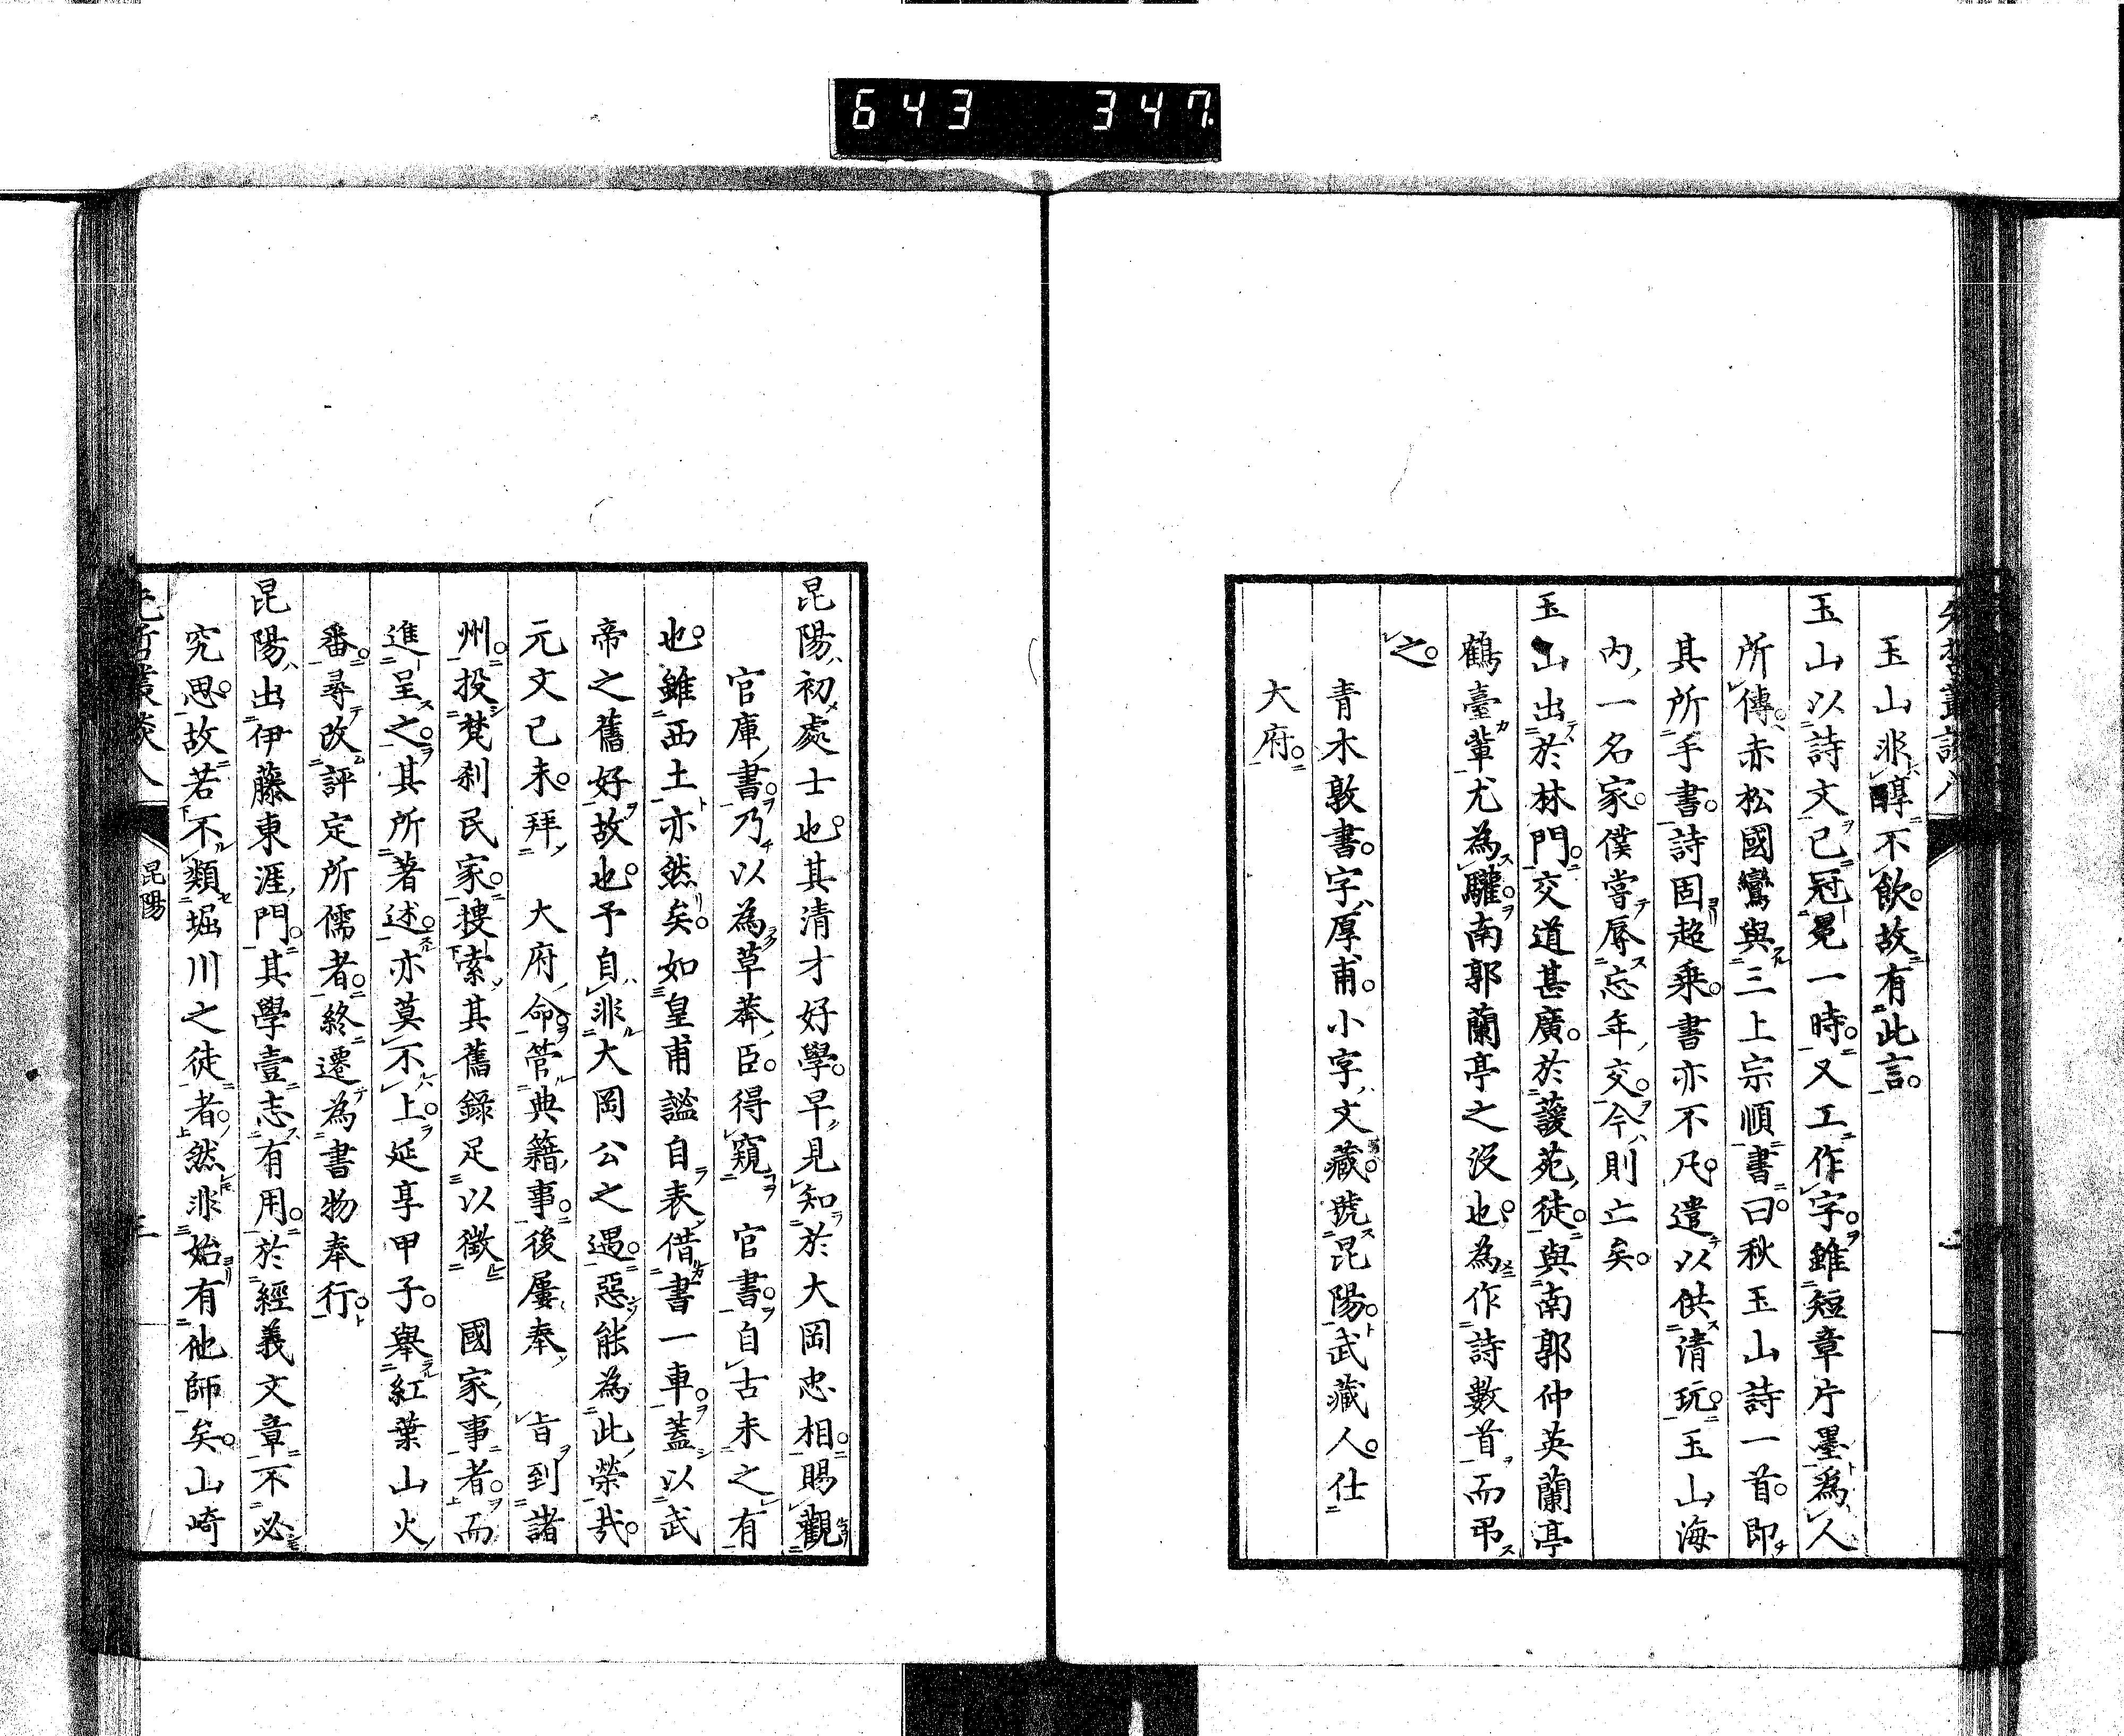 643 347
先哲叢談八
玉山非醇不飮故有此言
玉山以詩文已冠冕一時又工作字雖短章片墨爲人
所傳赤松國鸞與三上宗順書曰秋玉山詩一首即
其所手書詩固超乘書亦不凡遣以供淸玩玉山海
內一名家僕嘗辱忘年交今則亡矣
玉山出於林門交道甚廣於蘐苑徒與南郭仲英蘭亭
鶴臺輩尤為驩南郭蘭亭之沒也為作詩數首而弔
之
青木敦書字厚甫小字文藏號昆陽武藏人仕
大府
昆陽初處士也其清才好學早見知於大岡忠相賜觀
官庫書乃以為草莽臣得窺 官書自古未之有
也雖西土亦然矣如皇甫謐自表借書一車蓋以武
帝之舊好故也予自非大岡公之遇惡能為此榮哉
元文己未拜 大府命管典籍事後屢奉 旨到諸
州投梵刹民家搜索其舊錄足以徵 國家事者而
進呈之其所著述亦莫不上延享甲子舉紅葉山火
番尋改評定所儒者終遷為書物奉行
昆陽出伊藤東涯門其學壹志有用於經義文章不必
究思故若不類堀川之徒者然非始有他師矣山崎
先哲叢談八
昆陽
三